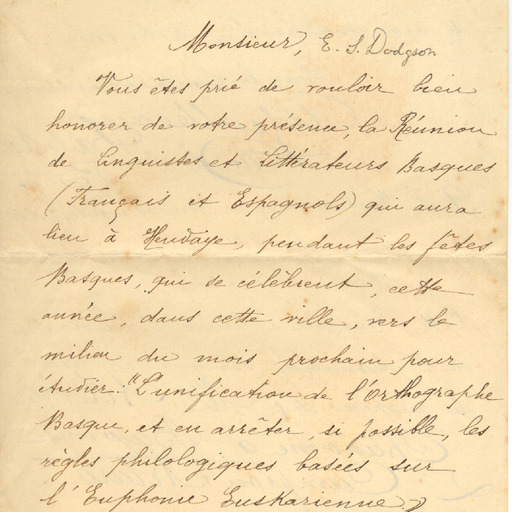 Monsieur, E. S. Dodgson
Vous êtes prié de vouloir bien
honorer de votre présence, la Réunion
de Linguistes et Littérateurs Basques
(Français et Espagnols) qui aura
lieu à Hendaye, pendant les fêtes
Basques, qui se célèbrent, cette
année, dans cette ville, vers le
milieu du mois prochain pour
étudier: "L'unification de l'Orthographe
Basque, et en arrêter, si possible, les
règles philologiques basées sur
l'Euphonie Euskarienne."